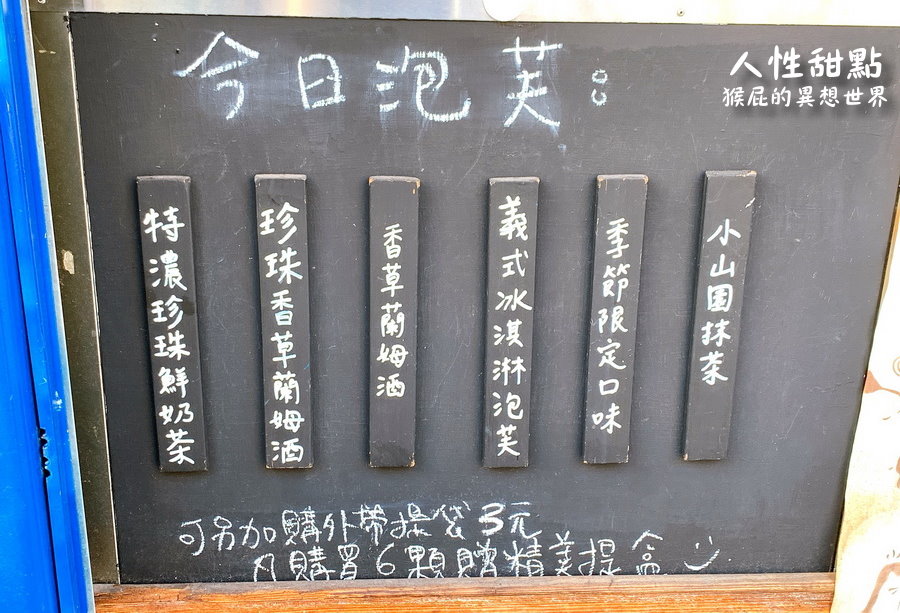 今日泡芙：
人性甜點
猴屁的異想世界
小山園抹茶
季節限定口味
義式冰淇淋泡芙
香草蘭姆酒
珍珠香草蘭姆酒
特濃珍珠鮮奶茶
可另加購外帶提袋3元
凡購買6顆贈精美提盒